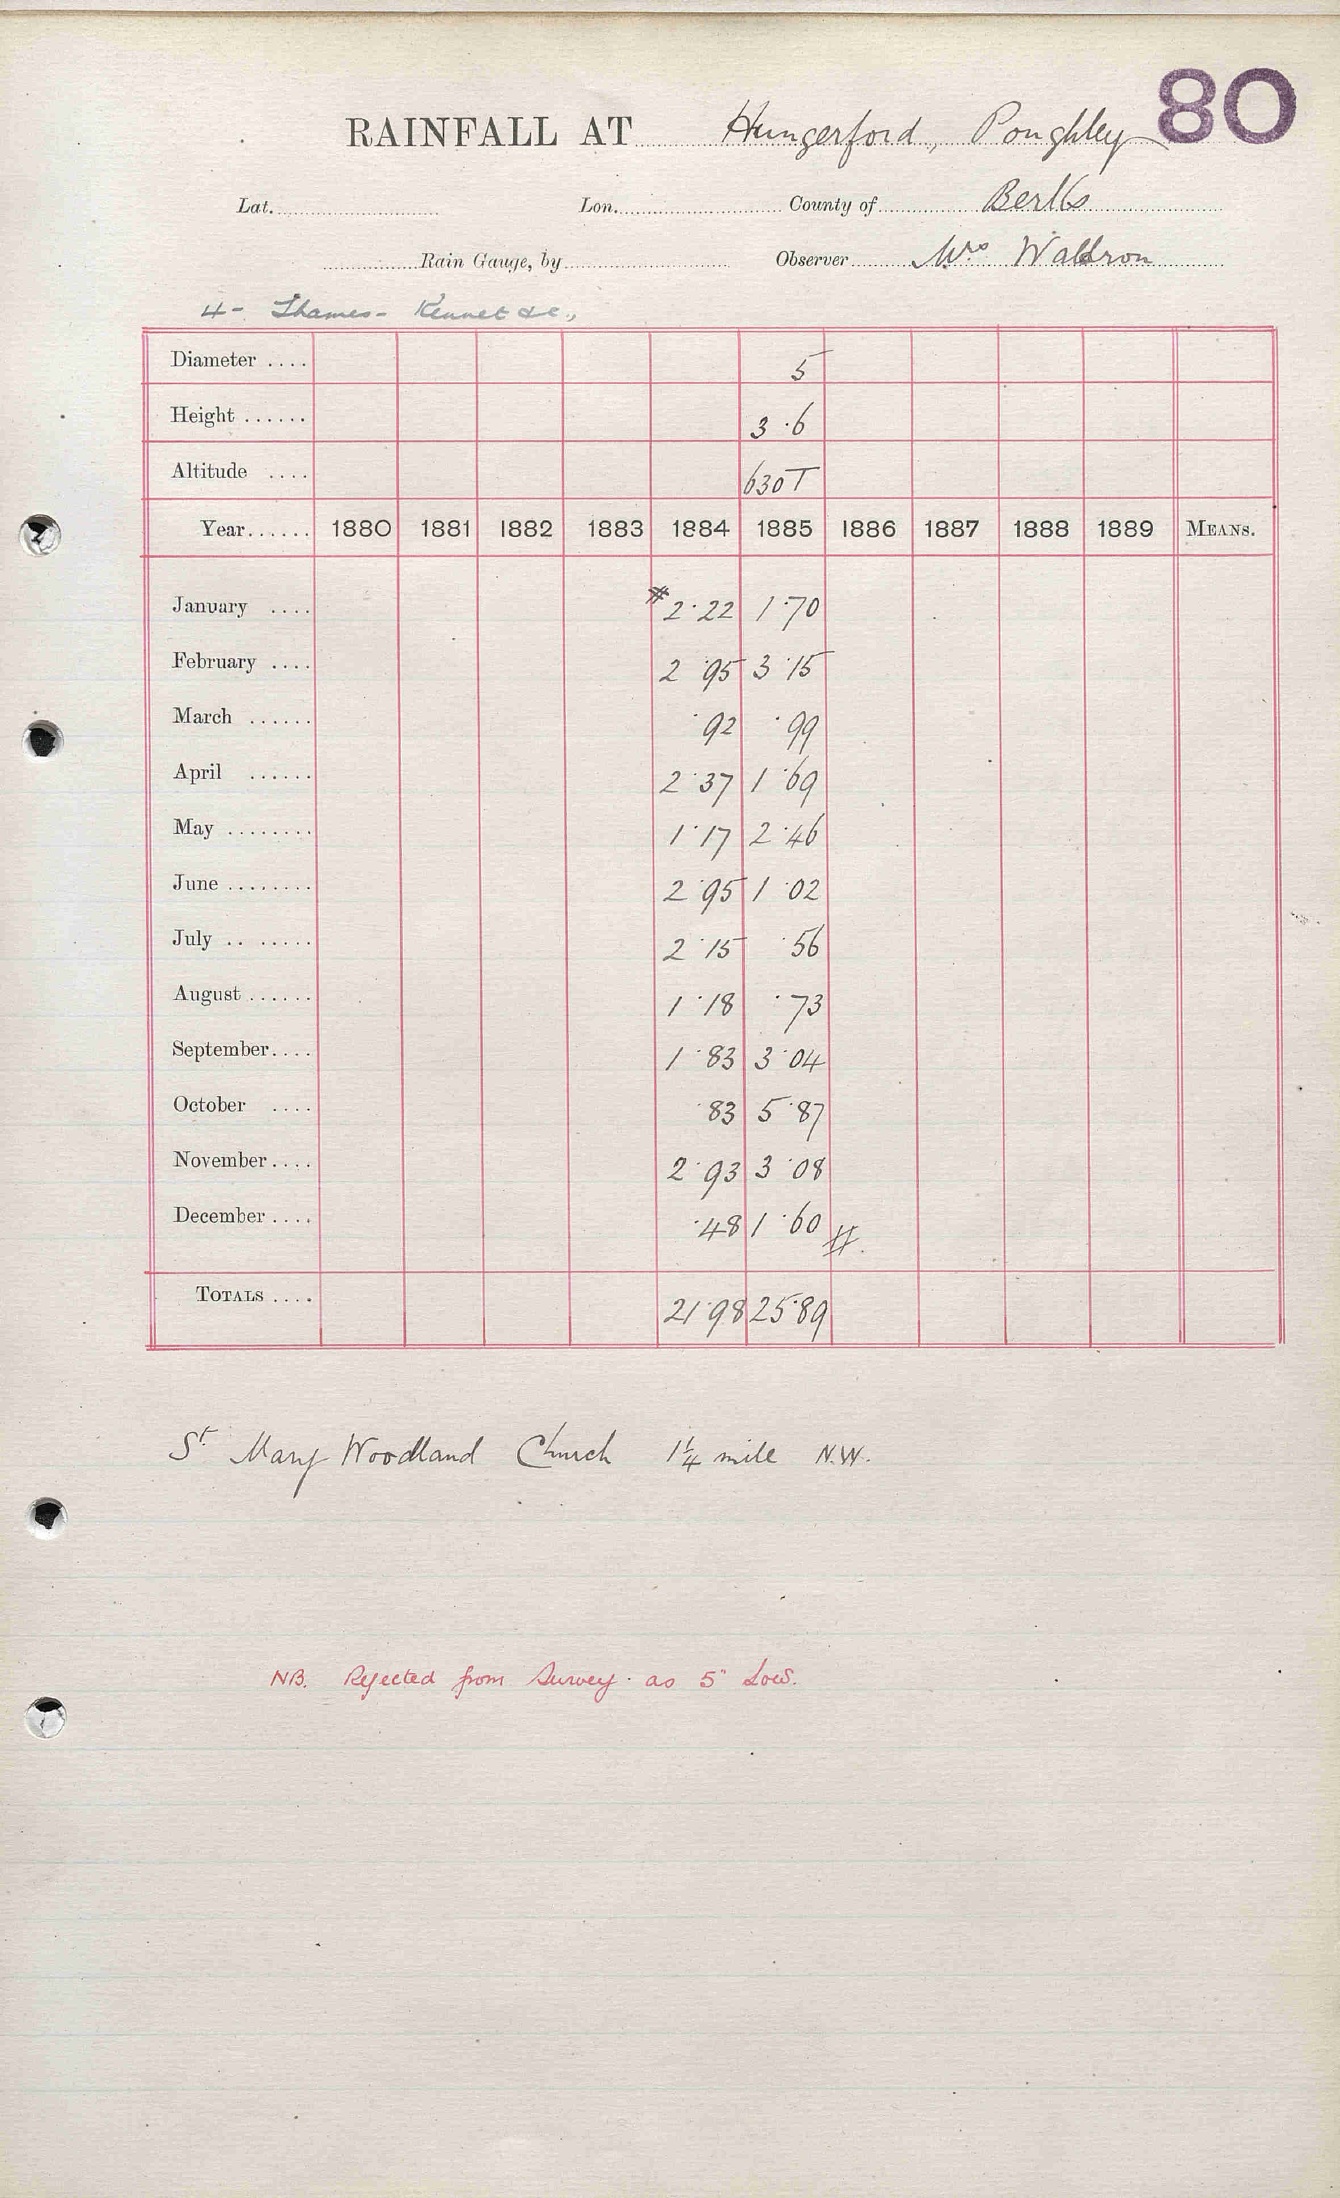 80
RAINFALL AT Hungerford, Poughley
Lat. Lon. County of Berks
Rain Gauge, by Observer Mrs Waldron
4 - Thames - Kennet &c.,
Diameter .... 5
Height ...... 3.6
Altitude .... 630T
Year...... 1880 1881 1882 1883 1884 1885 1886 1887 1888 1889 MEANS.
January .... # 2.22 1.70
February .... 2.95 3.15
March ...... .92 .99
April ...... 2.37 1.69
May ........ 1.17 2.46
June ........ 2.95 1.02
July .. ..... 2.15 .56
August ...... 1.18 .73
September.... 1.83 3.04
October .... .83 5.87
November.... 2.93 3.08
December.... .48 1.60 #.
TOTALS .... 21.98 25.89
St. Mary Woodland Church 1¼ mile N.W.
NB. Rejected from Survey. as 5" Low.